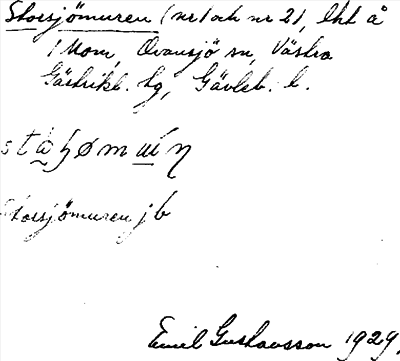 Storsjömuren (nr 1 och nr 2), lht å
1 Mom, Ovansjö sn, Västra
Gästrikl. hg, Gävleb. l.
Storsjömuren jb
Emil Gustavsson 1929.